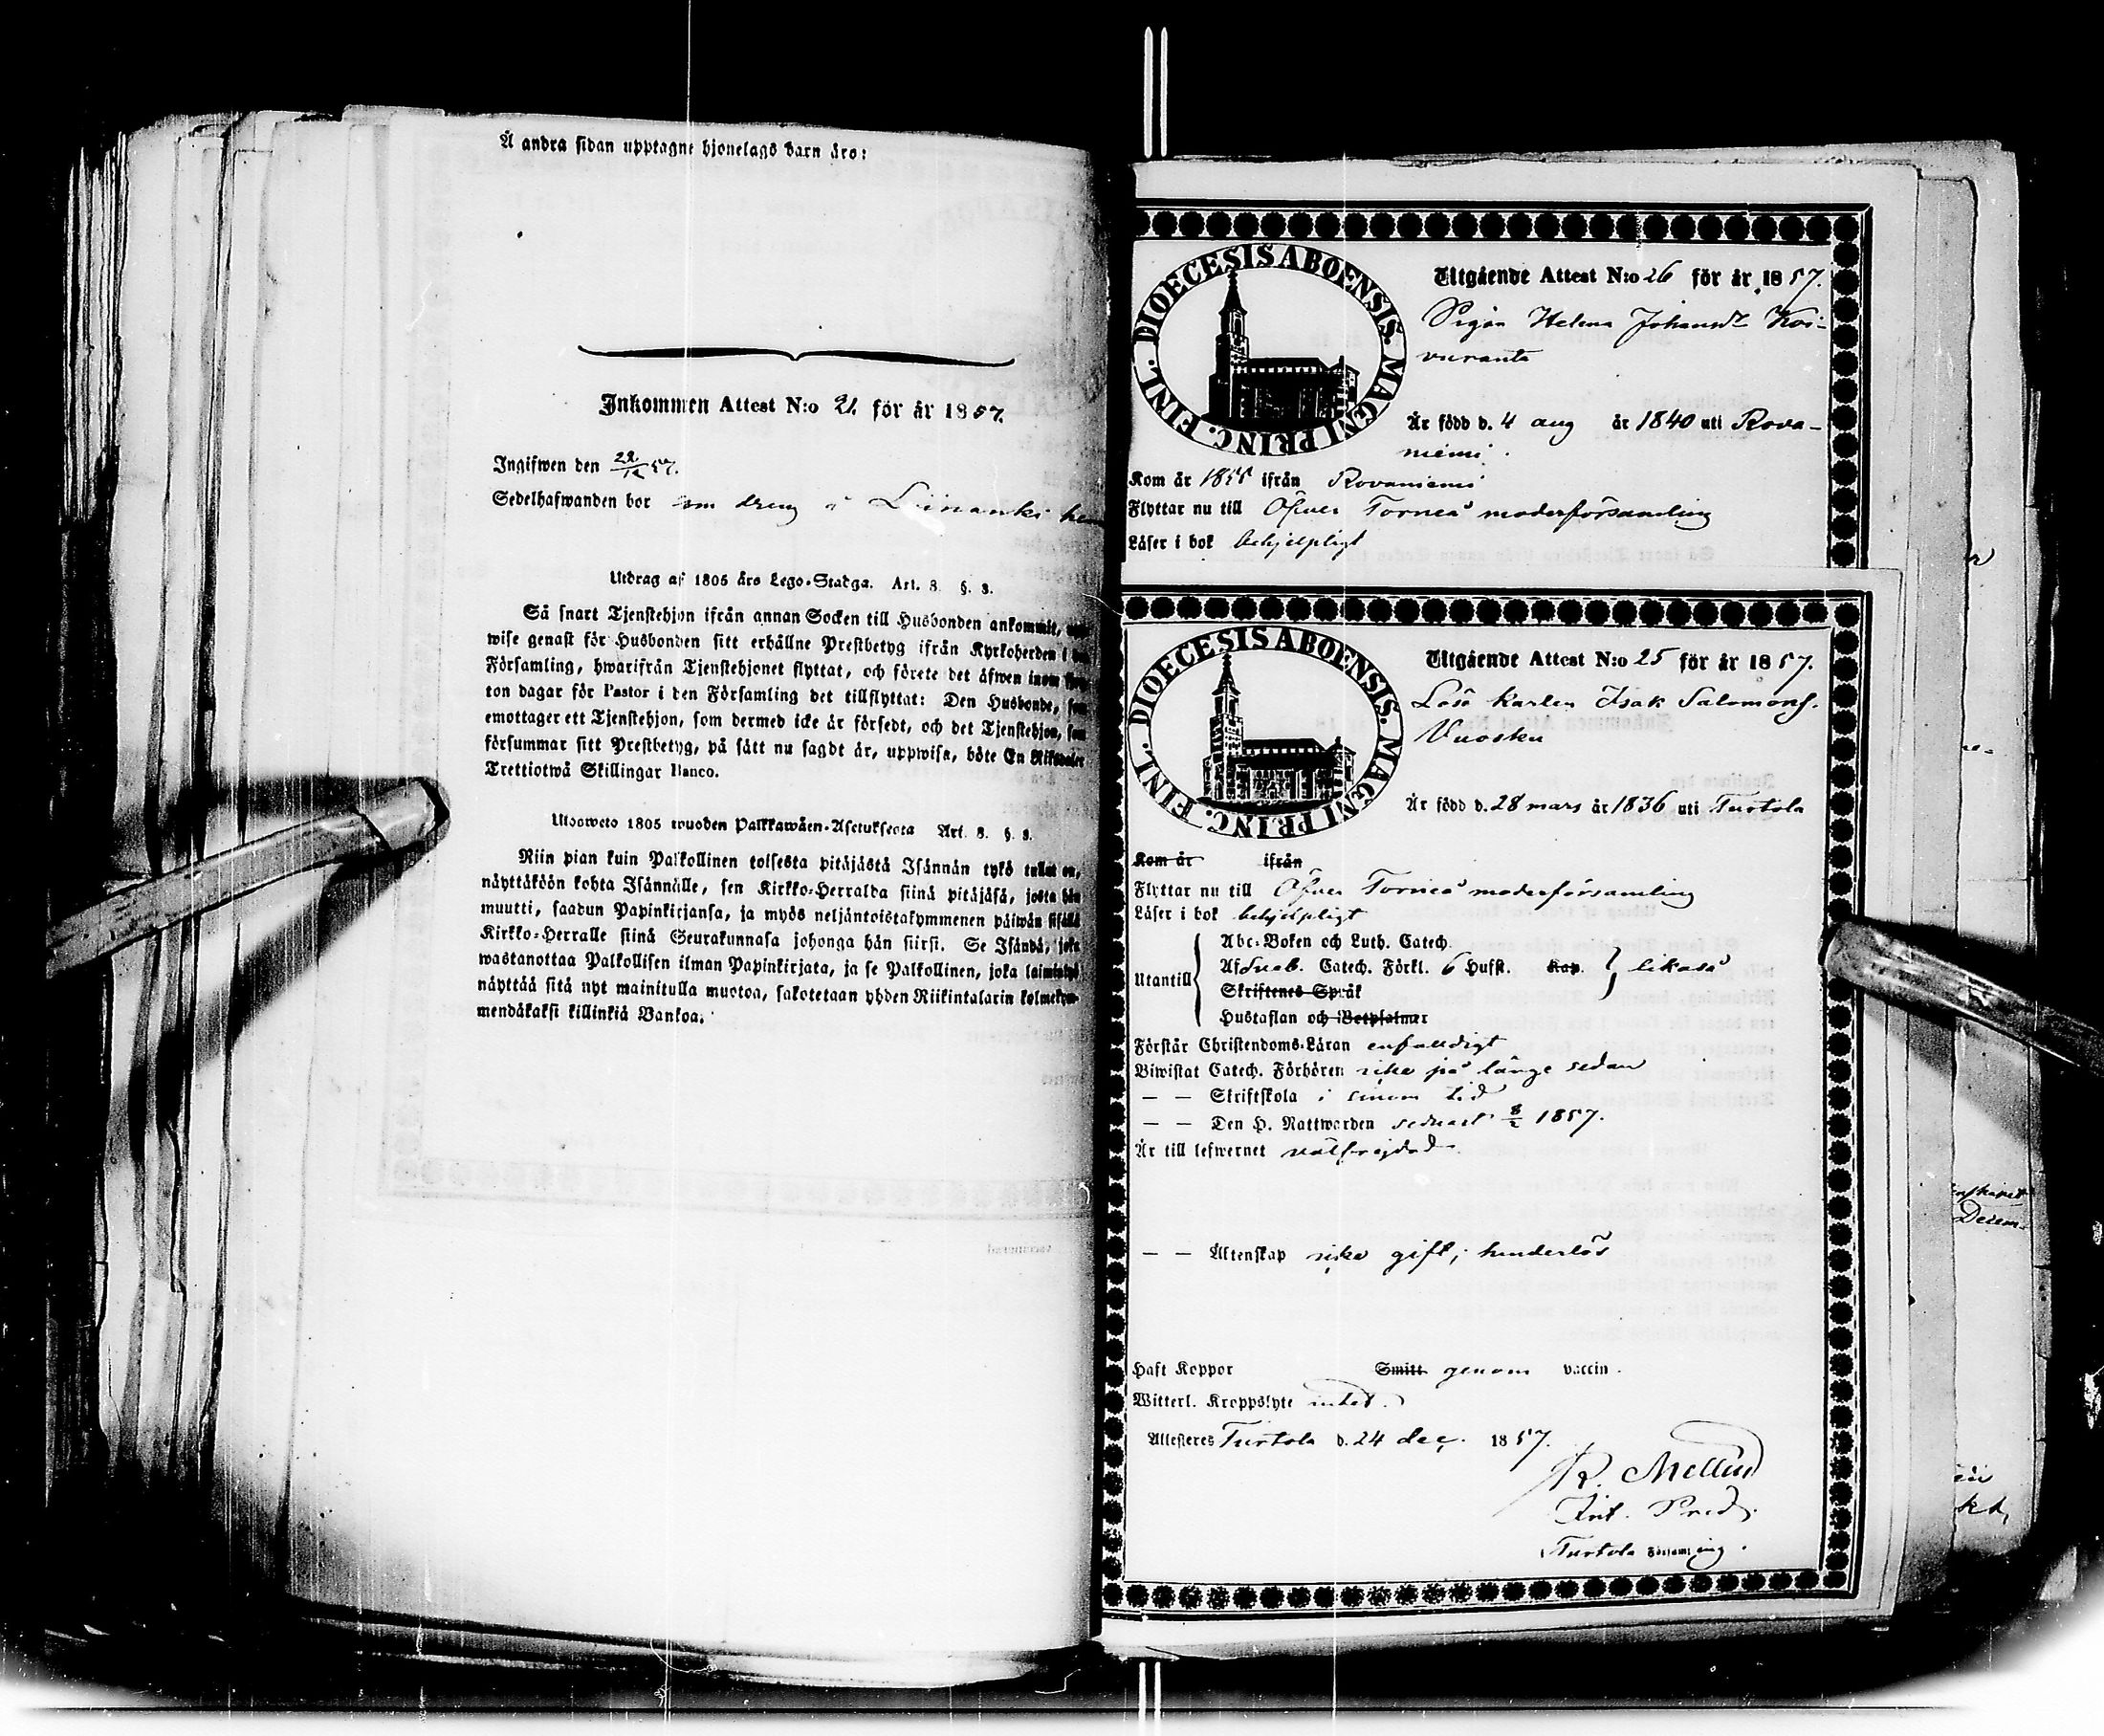 Å andra sidan upptagne hjonelags barn äro:
Inkommen Attest N:o 21. för år 1857.
Ingifwen den 22/12 57.
Sedelhafwanden bor som dreng å Liinanki
Utdrag af 1805 års Lego-Stadga. Art. 8. §. 8.
Så snart Tjenstehjon ifrån annan Socken till Husbonden ankommit,
wise genast för Husbonden sitt erhållne Prestbetyg ifrån Kyrkoherden i
Församling, hwarifrån Tjenstehjonet flyttat, och förete det äfwen inom
ton dagar för Pastor i den Församling det tillflyttat: Den Husbonde, som
emottager ett Tjenstehjon, som dermed icke är försedt, och det Tjenstehjon, som
försummar sitt Prestbetyg, på sätt nu sagdt är, uppwisa, böte En Riksdaler
Trettiotwå Skillingar Banco.
Ulosweto 1805 wuoden Palkkawäen-Asetuksesta Art. 8. §. 8.
Niin pian kuin Palkollinen toisesta pitäjästä Isännän tykö tullut on,
näyttäköön kohta Isännälle, sen Kirkko-Herralda siinä pitäjäsä, josta hän
muutti, saadun Papinkirjansa, ja myös neljäntoistakymmenen päiwän sisällä
Kirkko-Herralle siinä Seurakunnasa johonga hän siirsi. Se Isändä, joka
wastanottaa Palkollisen ilman Papinkirjata, ja se Palkollinen, joka laiminlyö
näyttää sitä nyt mainitulla muotoa, sakotetaan yhden Riikintalarin kolmekym-
mendäkaksi killinkiä Bankoa.
FINL. DIOECESIS ABOENSIS. MAGNI PRINC.
Utgående Attest N:o 26 för år 1857.
Pigan Helena Johansdr Koi-
vuranta
Är född d. 4 aug år 1840 uti Rova-
niemi.
Kom år 1855 ifrån Rovaniemi
Flyttar nu till Öfver Torneå moderförsamling
Läser i bok behjelpligt
FINL. DIOECESIS ABOENSIS. MAGNI PRINC.
Utgående Attest N:o 25 för år 1857.
Löse karlen Isak Salomonss.
Vuosku
Är född d. 28 mars år 1836 uti Turtola
Kom år ifrån
Flyttar nu till Öfver Torneå moderförsamling
Läser i bok behjelpligt
Abc-Boken och Luth. Catech.
Utantill Af Sveb. Catech. Förkl. 6 Hufst. Kap. likaså
Skriftenes Språk
Hustaflan och Betpsalmer
Förstår Christendoms-Läran enfaldigt
Biwistat Catech. Förhören icke på länge sedan
— — Skriftskola i sinom tid
— — Den H. Nattwarden sednast 8/2 1857.
Är till lefwernet välfrejdad
— — Äktenskap icke gift; hinderlös
Haft Koppor Smitt genom vaccin.
Witterl. Kroppslyte intet.
Attesteres Turtola d. 24 dec. 1857.
R. Mellin
Pred.
Turtola Församling.